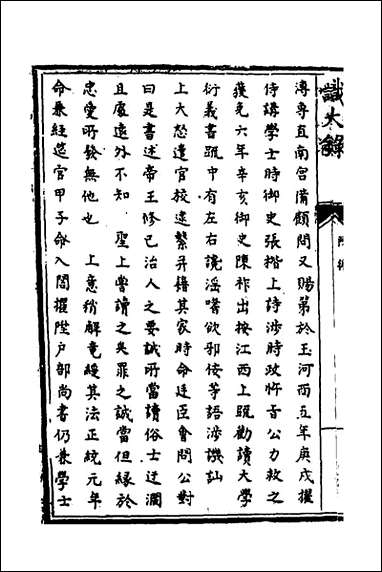 識大錄
漙專直南宮備顧問又賜第於玉河西五年庚戌擢
侍講學士時御史張楷上詩涉時政忤旨公力救之
獲免六年辛亥御史陳祚出按江西上䟽勸讀大學
衍義書䟽中有左右讒淫嗜欲邪佞等語涉譏訕
上大怒遣官校逮繫并籍其家時命廷臣會問公對
曰是書述帝王修己治人之要誠所當讀俗士迂濶
且處遠外不知　聖上嘗讀之矣罪之誠當但緣於
忠愛所發無他也　上意稍解竟緩其法正統元年
命兼經筵官甲子命入閣擢陞戶部尚書仍兼學士